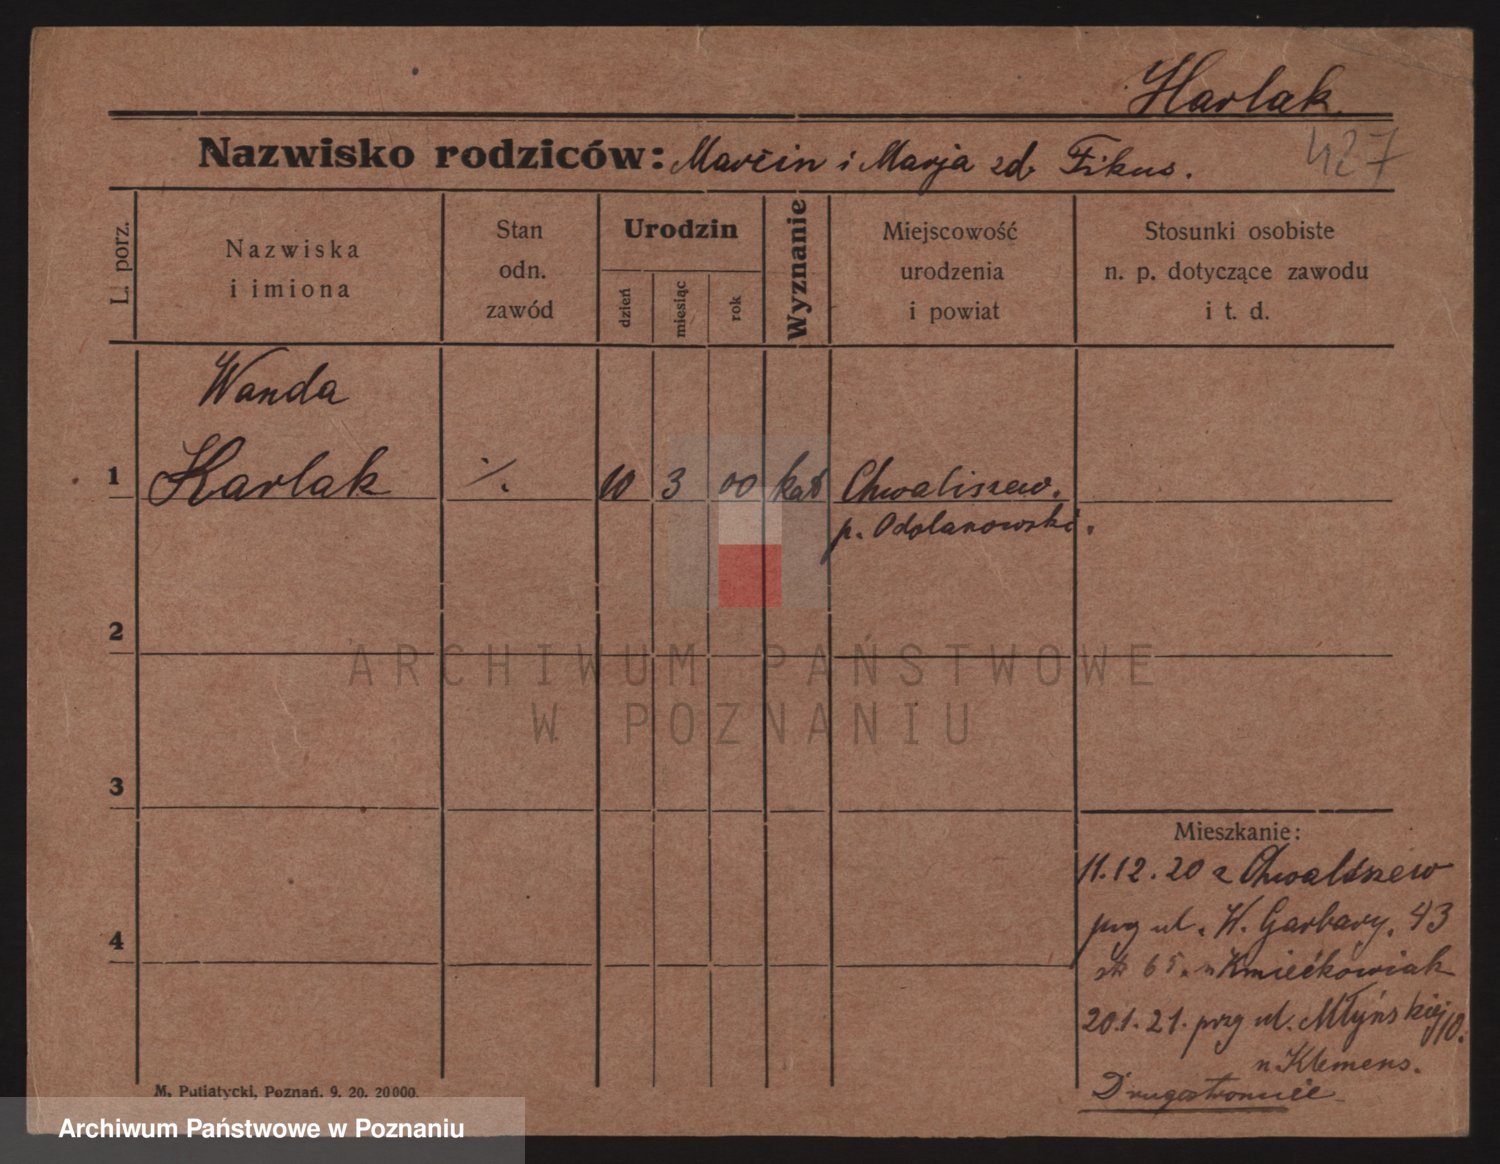 Harlak.
427
Nazwisko rodziców: Marcin i Marja zd. Fikus.
L. porz.
Nazwiska
i imiona
Stan
odn.
zawód
Urodzin
dzień
miesiąc
rok
Wyznanie
Miejscowość
urodzenia
i powiat
Stosunki osobiste
n. p. dotyczące zawodu
i t. d.
Wanda
1 Harlak ·/. 10 3 00 kat Chwaliszew.
p. Odolanowski.
2
3
4
ARCHIWUM PAŃSTWOWE
W POZNANIU
Mieszkanie:
11.12.20 z Chwaliszew
prg ul. W. Garbary. 43
u Kmiećkowiak
20.1.21. przg ul. Młyńskiej 10.
u Klemens.
Drugostronnie
M. Putiatycki, Poznań. 9. 20. 20000.
Archiwum Państwowe w Poznaniu